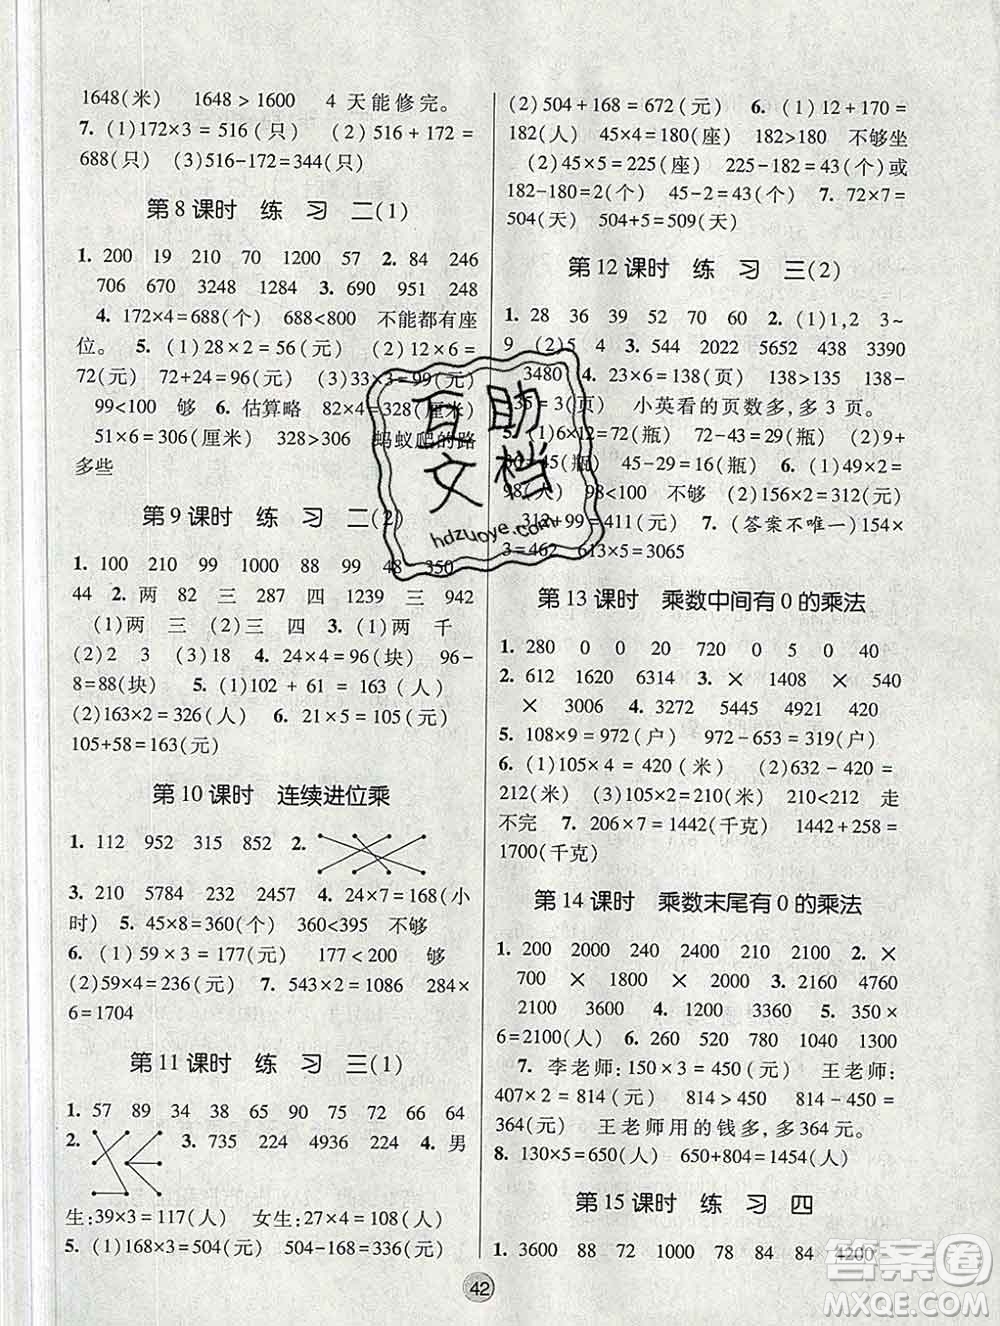 1648(米) 1648>1600 4 天能修完。
7. (1)172×3=516(只) (2)516+172=
688(只) (3)516-172=344(只)
第8课时 练 习 二(1)
1. 200 19 210 70 1200 57 2. 84 246
706 670 3248 1284 3. 690 951 248
4. 172×4=688(个) 688<800 不能都有座
位。 5. (1)28×2=56(元) (2)12×6=
72(元) 72+24=96(元) (3)33×3=99(元)
99<100 够 6. 估算略 82×4=328(厘米)
51×6=306(厘米) 328>306 蚂蚁爬的路
多些
第9课时 练 习 二(2)
1. 100 210 99 1000 88 99 48 350
44 2. 两 82 三 287 四 1239 三 942
(1)两 三 (2)三 四 3. (1)两 千
(2)2 3 (3)18 4. 24×4=96(块) 96-
8=88(块) 5. (1)102+61=163(人)
(2)163×2=326(人) 6. 21×5=105(元)
105+58=163(元)
第10课时 连续进位乘
1. 112 952 315 852 2.
3. 210 5784 232 2457 4. 24×7=168(小
时) 5. 45×8=360(个) 360<395 不够
6. (1)59×3=177(元) 177<200 够
(2)59×4=236(元) 7. 543×2=1086 284×
6=1704
第11课时 练 习 三(1)
1. 57 89 34 38 90 75 72 66 64
2. 3. 735 224 4936 224 4. 男
生:39×3=117(人) 女生:27×4=108(人)
5. (1)168×3=504(元) 504-168=336(元)
(2)504+168=672(元) 6. (1)12+170=
182(人) 45×4=180(座) 182>180 不够坐
(2)45×5=225(座) 225-182=43(个)或
182-180=2(个) 45-2=43(个) 7. 72×7=
504(天) 504+5=509(天)
第12课时 练 习 三(2)
1. 28 36 39 52 70 60 2. (1)1,2 3~
9 (2)5 4 3. 544 2022 5652 438 3390
3480 4. 23×6=138(页) 138>135 138-
135=3(页) 小英看的页数多,多3页。
5. (1)6×12=72(瓶) 72-29=43(瓶) (2)9+
45(瓶) 45-29=16(瓶) 6. (1)49×2=
98(人) 98<100 不够 (2)156×2=312(元)
312+99=411(元) 7. (答案不唯一)154×
3=462 613×5=3065
第13课时 乘数中间有0的乘法
1. 280 0 0 20 720 0 5 0 40
2. 612 1620 6314 3. × 1408 × 540
× 3006 4. 3272 5445 4921 420
5. 108×9=972(户) 972-653=319(户)
6. (1)105×4=420(米) (2)632-420=
212(米) (3)105×2=210(米) 210<212 走
不完 7. 206×7=1442(千克) 1442+258=
1700(千克)
第14课时 乘数末尾有0的乘法
1. 200 2000 240 2400 210 2100 2. ×
700 × 1800 × 2000 3. 2380 4760
2100 3600 4. 1400 1200 3360 5. 350×
6=2100(人) 6. 260 520 780 1040 1300
7. 李老师:150×3=450(元) 王老师:
407×2=814(元) 814>450 814-450=
364(元) 王老师用的钱多,多364元。
8. 130×5=650(人) 650+804=1454(人)
第15课时 练 习 四
1. 3600 88 72 1000 78 84 84 4200
42
互助
文档
hdzuoye.com
答案圈
MXQE.COM